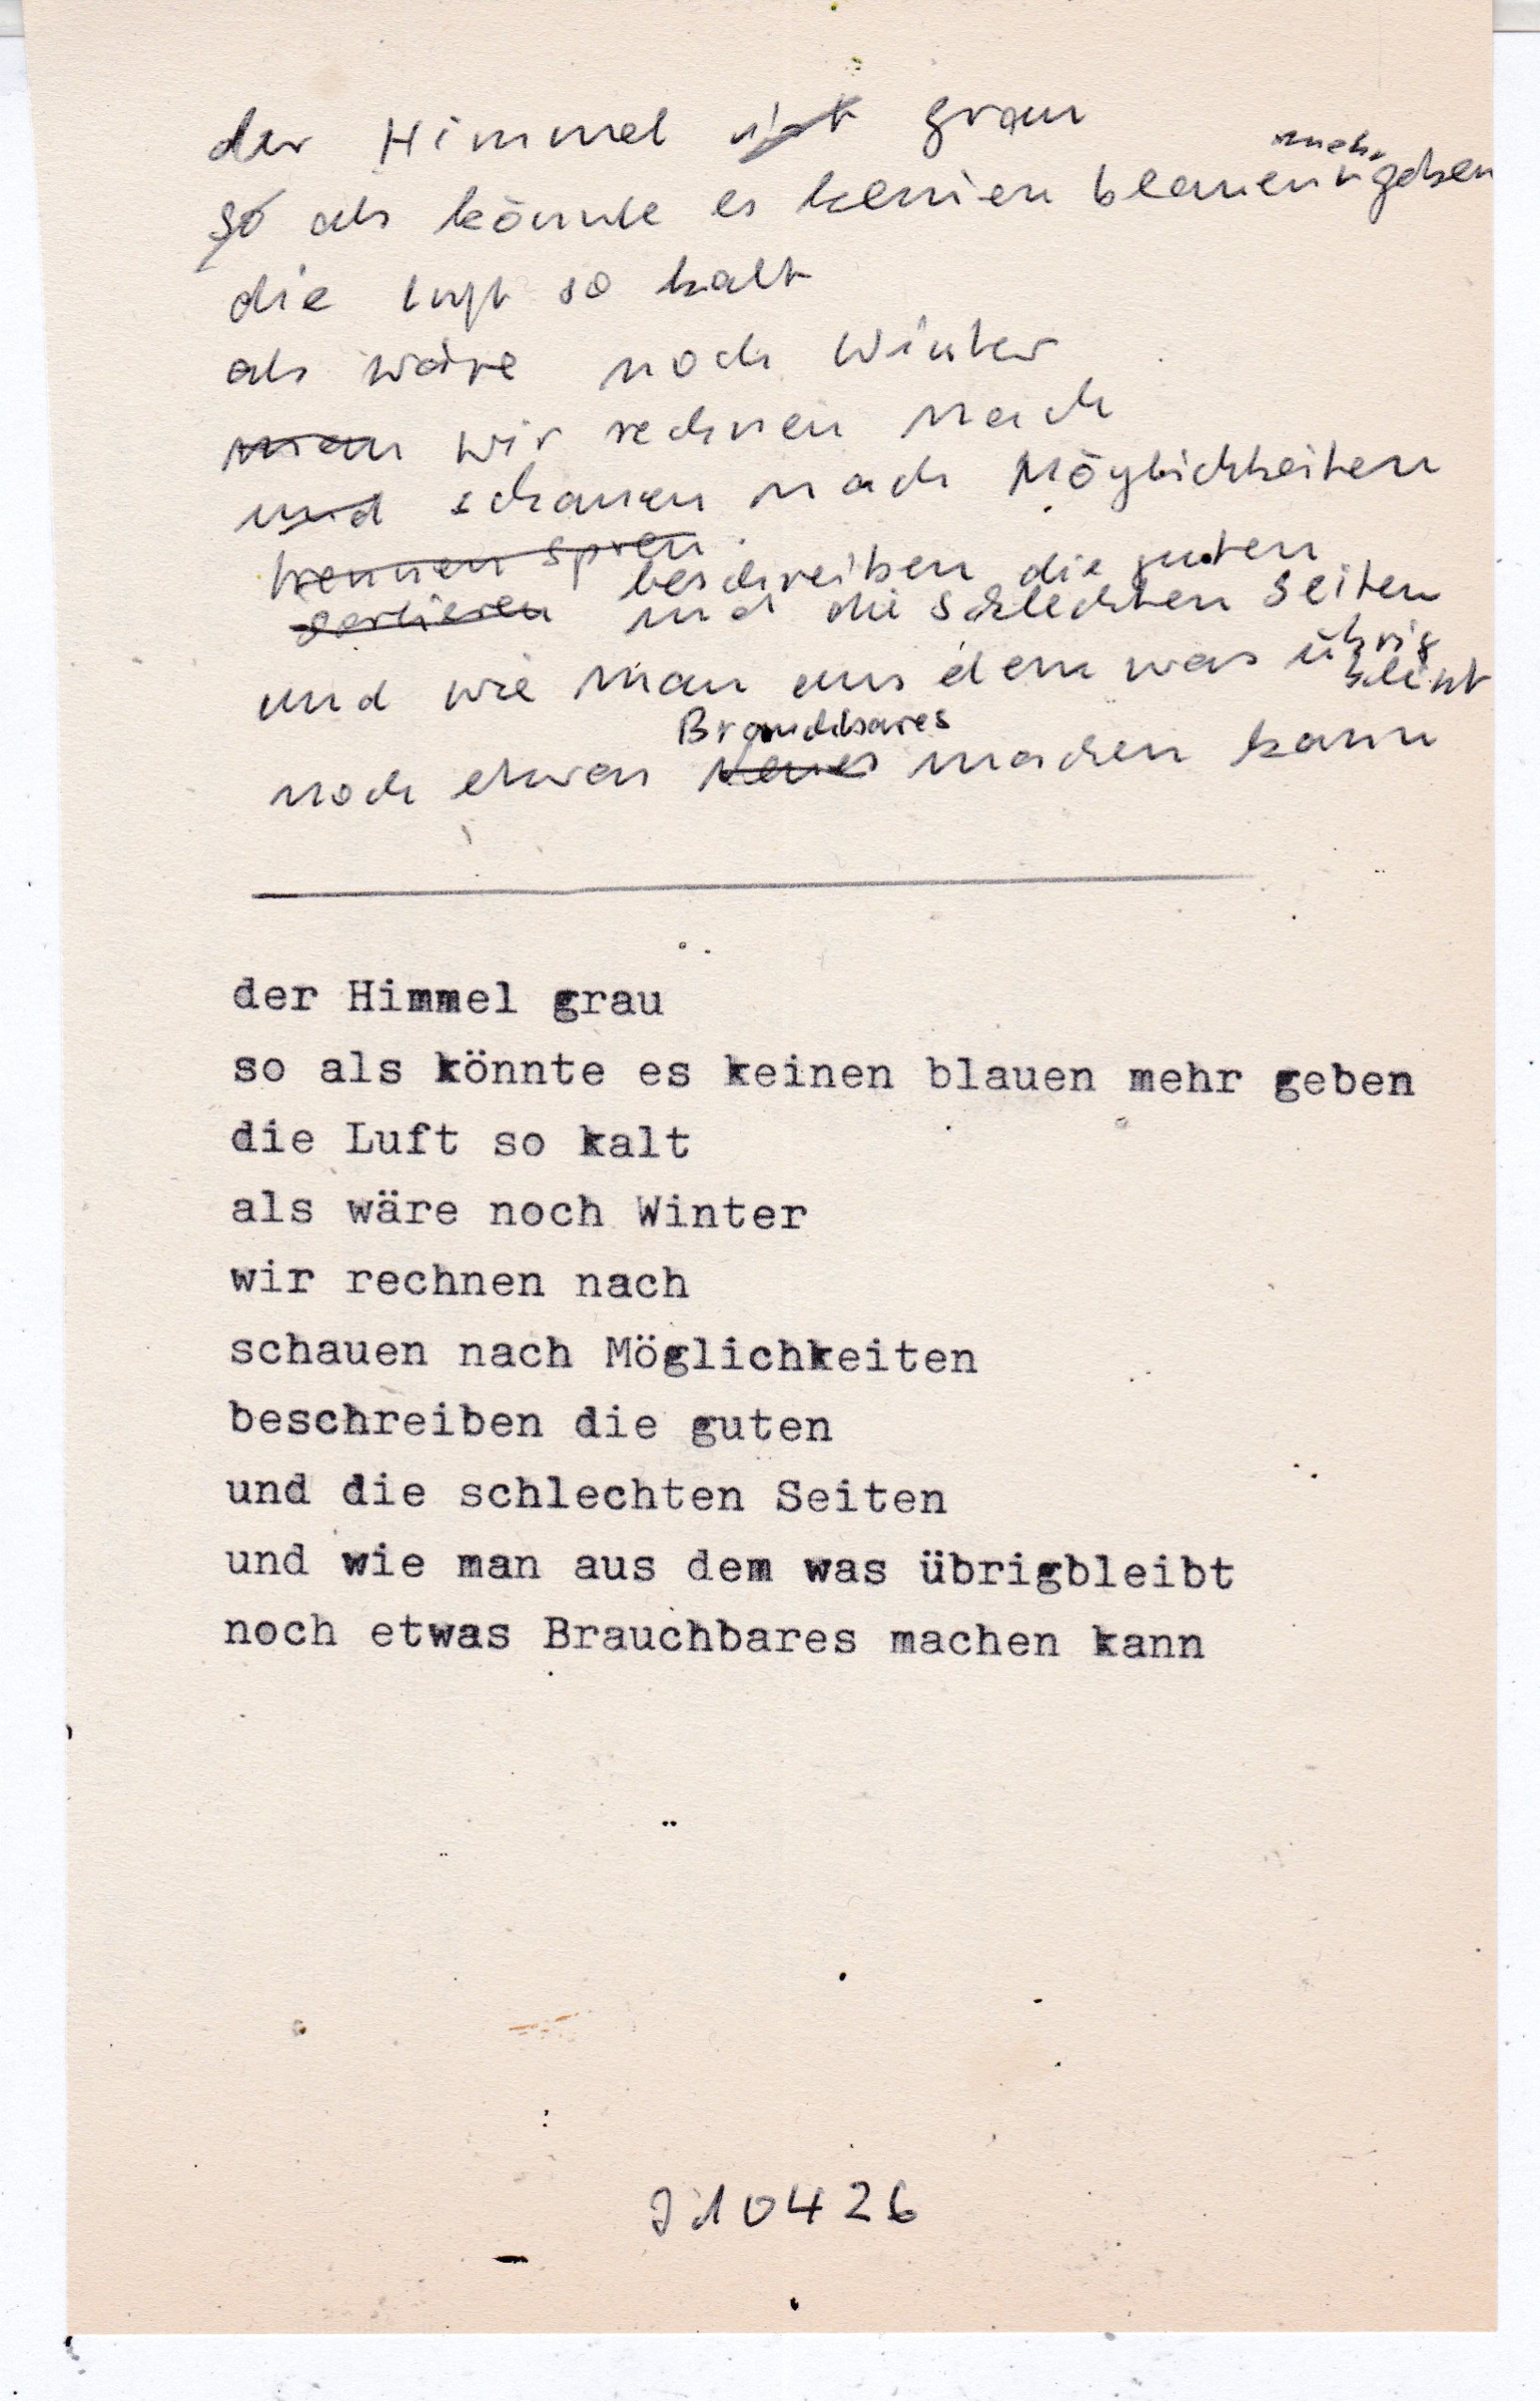 der Himmel ist grau
so als könnte es keinen blauen mehr geben
die Luft so kalt
als wäre noch Winter
man wir rechnen nach
und schauen nach Möglichkeiten
trennen Spreu
beschreiben die guten
sortieren und die schlechten Seiten
und wie man aus dem was übrig bleibt
Brauchbares
noch etwas Neues machen kann
der Himmel grau
so als könnte es keinen blauen mehr geben
die Luft so kalt
als wäre noch Winter
wir rechnen nach
schauen nach Möglichkeiten
beschreiben die guten
und die schlechten Seiten
und wie man aus dem was übrigbleibt
noch etwas Brauchbares machen kann
J10426